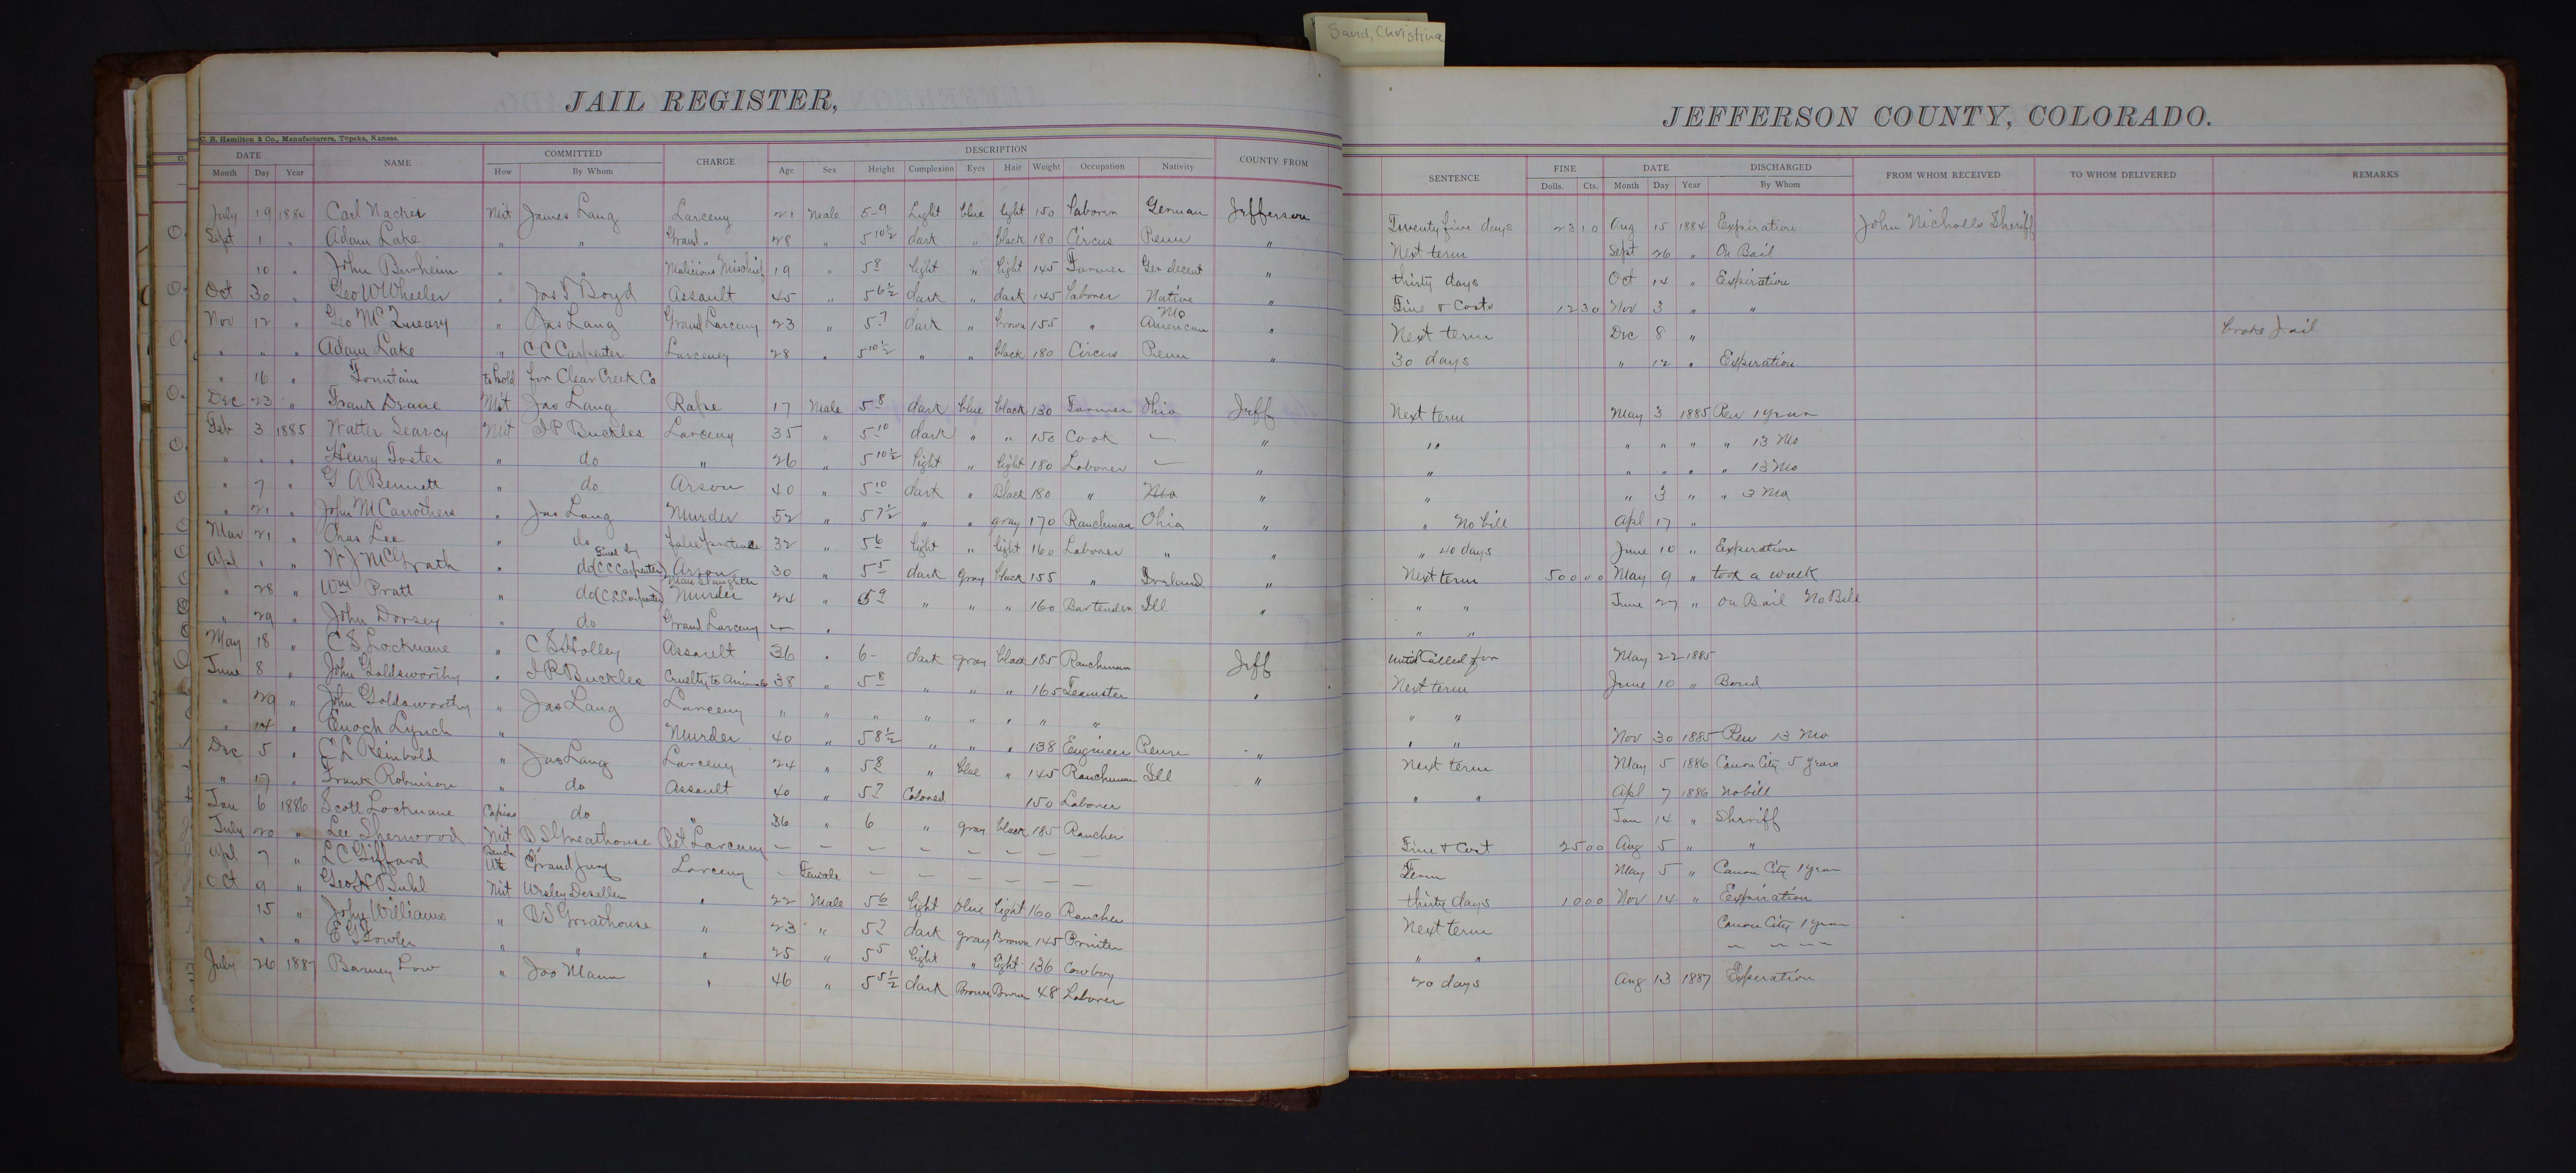 Sand, Christina
JAIL REGISTER,
C. B. Hamilton & Co., Manufacturers, Topeka, Kansas.
DATE NAME COMMITTED CHARGE DESCRIPTION COUNTY FROM
Month Day Year How By Whom Age Sex Height Complexion Eyes Hair Weight Occupation Nativity
July 19 1884 Carl Mit James Lang Larceny 21 Male 5-9 Light blue light 150 Laborer German Jefferson
Sept 1 " Adam Lake " " Grand " 28 " 5 10½ dark " black 180 Circus Penn "
10 " John Burheim " " Malicious Mischief 19 " 5 8 light " light 145 Farmer Ger decent "
Oct 30 " Geo W Wheeler " Jas T Boyd Assault 45 " 5 6½ dark " dark 145 Laborer Native "
Nov 12 " Geo " Jas Lang Grand Larceny 23 " 5 7 dark " brown 155 " Mo American "
" " " Adam Lake " C C Carpenter Larceney 28 " 5 10½ " " black 180 Circus Penn "
" 16 " Fountain to hold for Clear Creek Co
Dec 23 " Frank Deane Mit Jas Lang Rape 17 Male 5 8 dark blue black 130 Farmer Ohio Jeff
Feb 3 1885 Walter Searcy Mit I P Buckles Larceny 35 " 5 10 dark " " 150 Cook — "
" " " Henry Foster " do " 26 " 5 10½ light " light 180 Laborer — "
" 7 " G A Bennett " do Arson 40 " 5 10 dark " Black 180 " Mo "
" 21 " John M Carrothers " Jas Lang Murder 52 " 5 7½ " " gray 170 Ranchman Ohio "
Mar 21 " Chas Lee " do false pretense 32 " 5 6 light " light 160 Laborer " "
Apl 1 " W J McGrath " do (C C Carpenter) Arson 30 " 5 5 dark Gray black 155 " Ireland "
" 28 " Wm Pratt " do (C C Carpenter) Man Slaughter Murder 24 " 5 9 " " " 160 Bartender Ill "
" 29 " John Dorsey " do Grand Larceny — "
May 18 " C S Locknane " C S Holley Assault 36 " 6- dark gray black 185 Ranchman Jeff
June 8 " John Goldsworthy " I P Buckles Cruelty to Animals 38 " 5 8 " " " 165 Teamster "
" 29 " John Goldsworthy " Jas Lang Larceny " " " " " " " "
" 14 " Enoch Lynch " Murder 40 " 5 8½ " " " 138 Engineer Penn "
Dec 5 " C L Reinbold " Jas Lang Larceny 24 " 5 8 " blue " 145 Ranchman Ill "
" 17 " Frank Robinson " do Assault 40 " 5 7 Colored 150 Laborer
Jan 6 1886 Scott Locknane Capias do " 36 " 6 " gray black 185 Rancher
July 20 " Lee Sherwood Mit B S Greathouse Pet Larceny — — — — — — — —
Apl 7 " L C Giffard Bench Wt Grand Jury Larceny — Female — — — — — —
Oct 9 " Geo H Buhl Mit Wesley Desellem " 22 Male 5 6 light blue light 160 Rancher
15 " John Williams " B S Greathouse " 23 " 5 7 dark gray Brown 145 Printer
" " E G Fowler " " " 25 " 5 5 light " light 136 Cowboy
July 26 1887 Barney Low " Jos Mann " 46 " 5 5½ dark Brown Brown 48 Laborer
JEFFERSON COUNTY, COLORADO.
SENTENCE FINE DATE DISCHARGED FROM WHOM RECEIVED TO WHOM DELIVERED REMARKS
Dolls. Cts. Month Day Year By Whom
Twenty five days 23 10 Aug 15 1884 Expiration John Nicholls Sheriff
Next term Sept 26 " On Bail
thirty days Oct 14 " Expiration
Fine & Costs 12 30 Nov 3 " "
Next term Dec 8 " broke Jail
30 days " 12 " Experation
Next term May 3 1885 Pen 1 year
" " " " " 13 Mo
" " " " " 13 Mo
" " 3 " " 3 Mo
" No bill Apl 17 "
" 40 days June 10 " Experation
Next term 500 00 May 9 " took a walk
" " June 27 " On Bail No Bill
" "
Until Called for May 22 1885
Next term June 10 " Bond
" "
" " Nov 30 1885 Pen 13 Mo
Next term May 5 1886 Canon City 5 years
" " Apl 7 1886 No bill
Jan 14 " Sheriff
Fine & Cost 25 00 Aug 5 " "
Term May 5 " Canon City 1 year
thirty days 10 00 Nov 14 " Expiration
Next term Canon City 1 year
" " — — — —
20 days Aug 13 1887 Experation